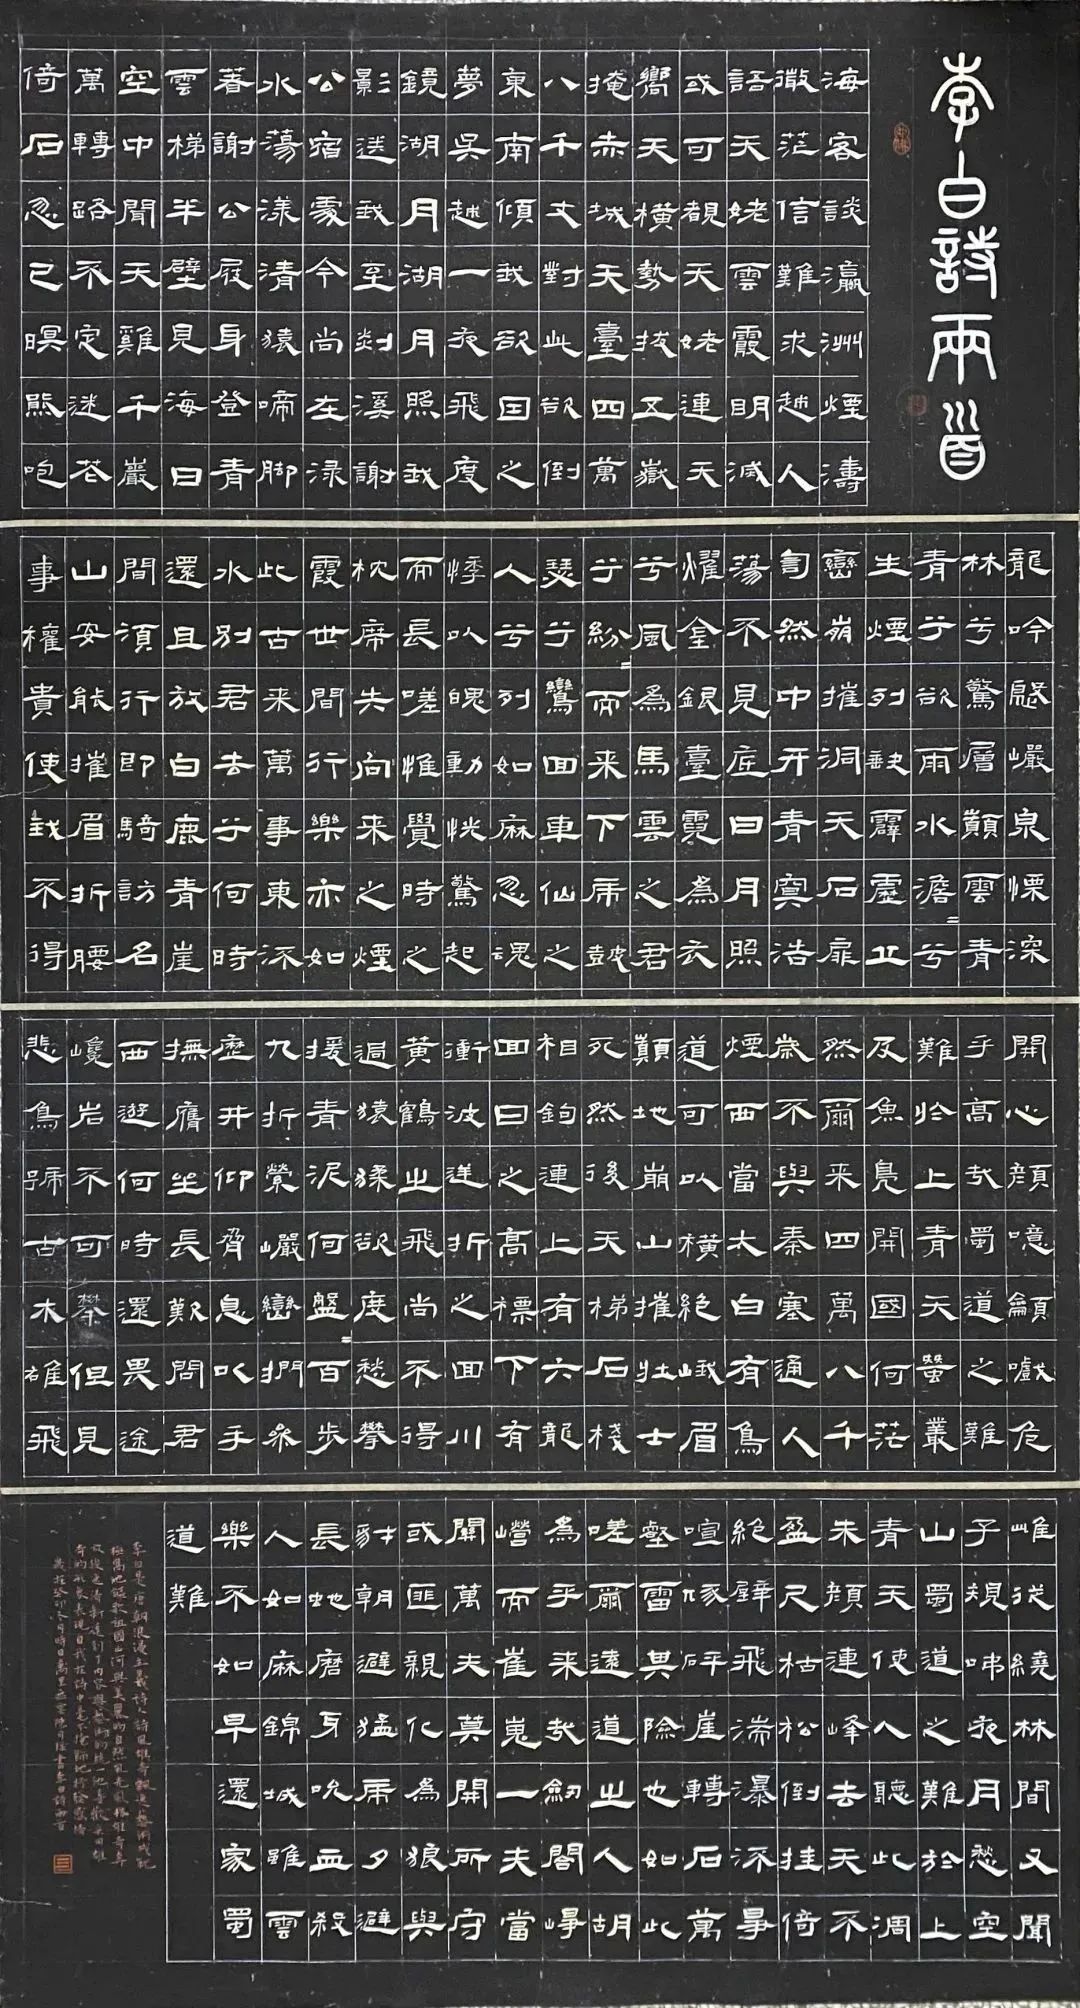 李白詩兩首
海客談瀛洲煙濤
微茫信難求越人
語天姥雲霞明滅
或可覩天姥連天
嚮天橫勢拔五嶽
掩赤城天臺四萬
八千丈對此欲倒
東南傾我欲因之
夢吳越一夜飛度
鏡湖月湖月照我
影送我至剡溪謝
公宿處今尚在淥
水蕩漾清猿啼脚
著謝公屐身登青
雲梯半壁見海日
空中聞天雞千巖
萬轉路不定迷花
倚石忽已暝熊咆
龍吟殷巖泉慄深
林兮驚層巔雲青
青兮欲雨水澹=兮
生煙列缺霹靂丘
巒崩摧洞天石扉
訇然中开青冥浩
蕩不見底日月照
燿金銀臺霓為衣
兮風為馬雲之君
兮紛=而来下虎鼓
瑟兮鸞回車仙之
人兮列如麻忽魂
悸以魄動恍驚起
而長嗟惟覺時之
枕席失向来之煙
霞世間行樂亦如
此古来萬事東流
水別君去兮何時
還且放白鹿青崖
間須行即騎訪名
山安能摧眉折腰
事權貴使我不得
開心顏噫籲嚱危
乎高哉蜀道之難
難於上青天蠶叢
及魚鳧開國何茫
然爾来四萬八千
歲不與秦塞通人
煙西當太白有鳥
道可以橫絕峨眉
巔地崩山摧壯士
死然後天梯石棧
相鉤連上有六龍
回日之高標下有
衝波逆折之回川
黃鶴之飛尚不得
過猿猱欲度愁攀
援青泥何盤=百步
九折縈巖巒捫參
歷井仰脅息以手
撫膺坐長歎問君
西遊何時還畏途
巉岩不可攀但見
悲鳥號古木雄飛
雌從繞林間又聞
子規啼夜月愁空
山蜀道之難於上
青天使人聽此凋
朱顏連峰去天不
盈尺枯松倒挂倚
絕壁飛湍瀑流爭
喧豗砯崖轉石萬
壑雷其險也如此
嗟爾遠道之人胡
為乎来哉劍閣崢
嶸而崔嵬一夫當
關萬夫莫開所守
或匪親化為狼與
豺朝避猛虎夕避
長蛇磨牙吮血殺
人如麻錦城雖雲
樂不如早還家蜀
道難
李白是唐朝浪漫主義詩人詩風雄奇飄逸藝術成就
極高他謳歌祖國山河與美麗的自然風光風格雄奇奔
放俊逸清新達到了內容與藝術的統一他喜歡採用雄
奇的形象表現自我在詩中毫不掩飾地抒發感情
歲在癸卯冬月時日萬里無雲書李白詩兩首